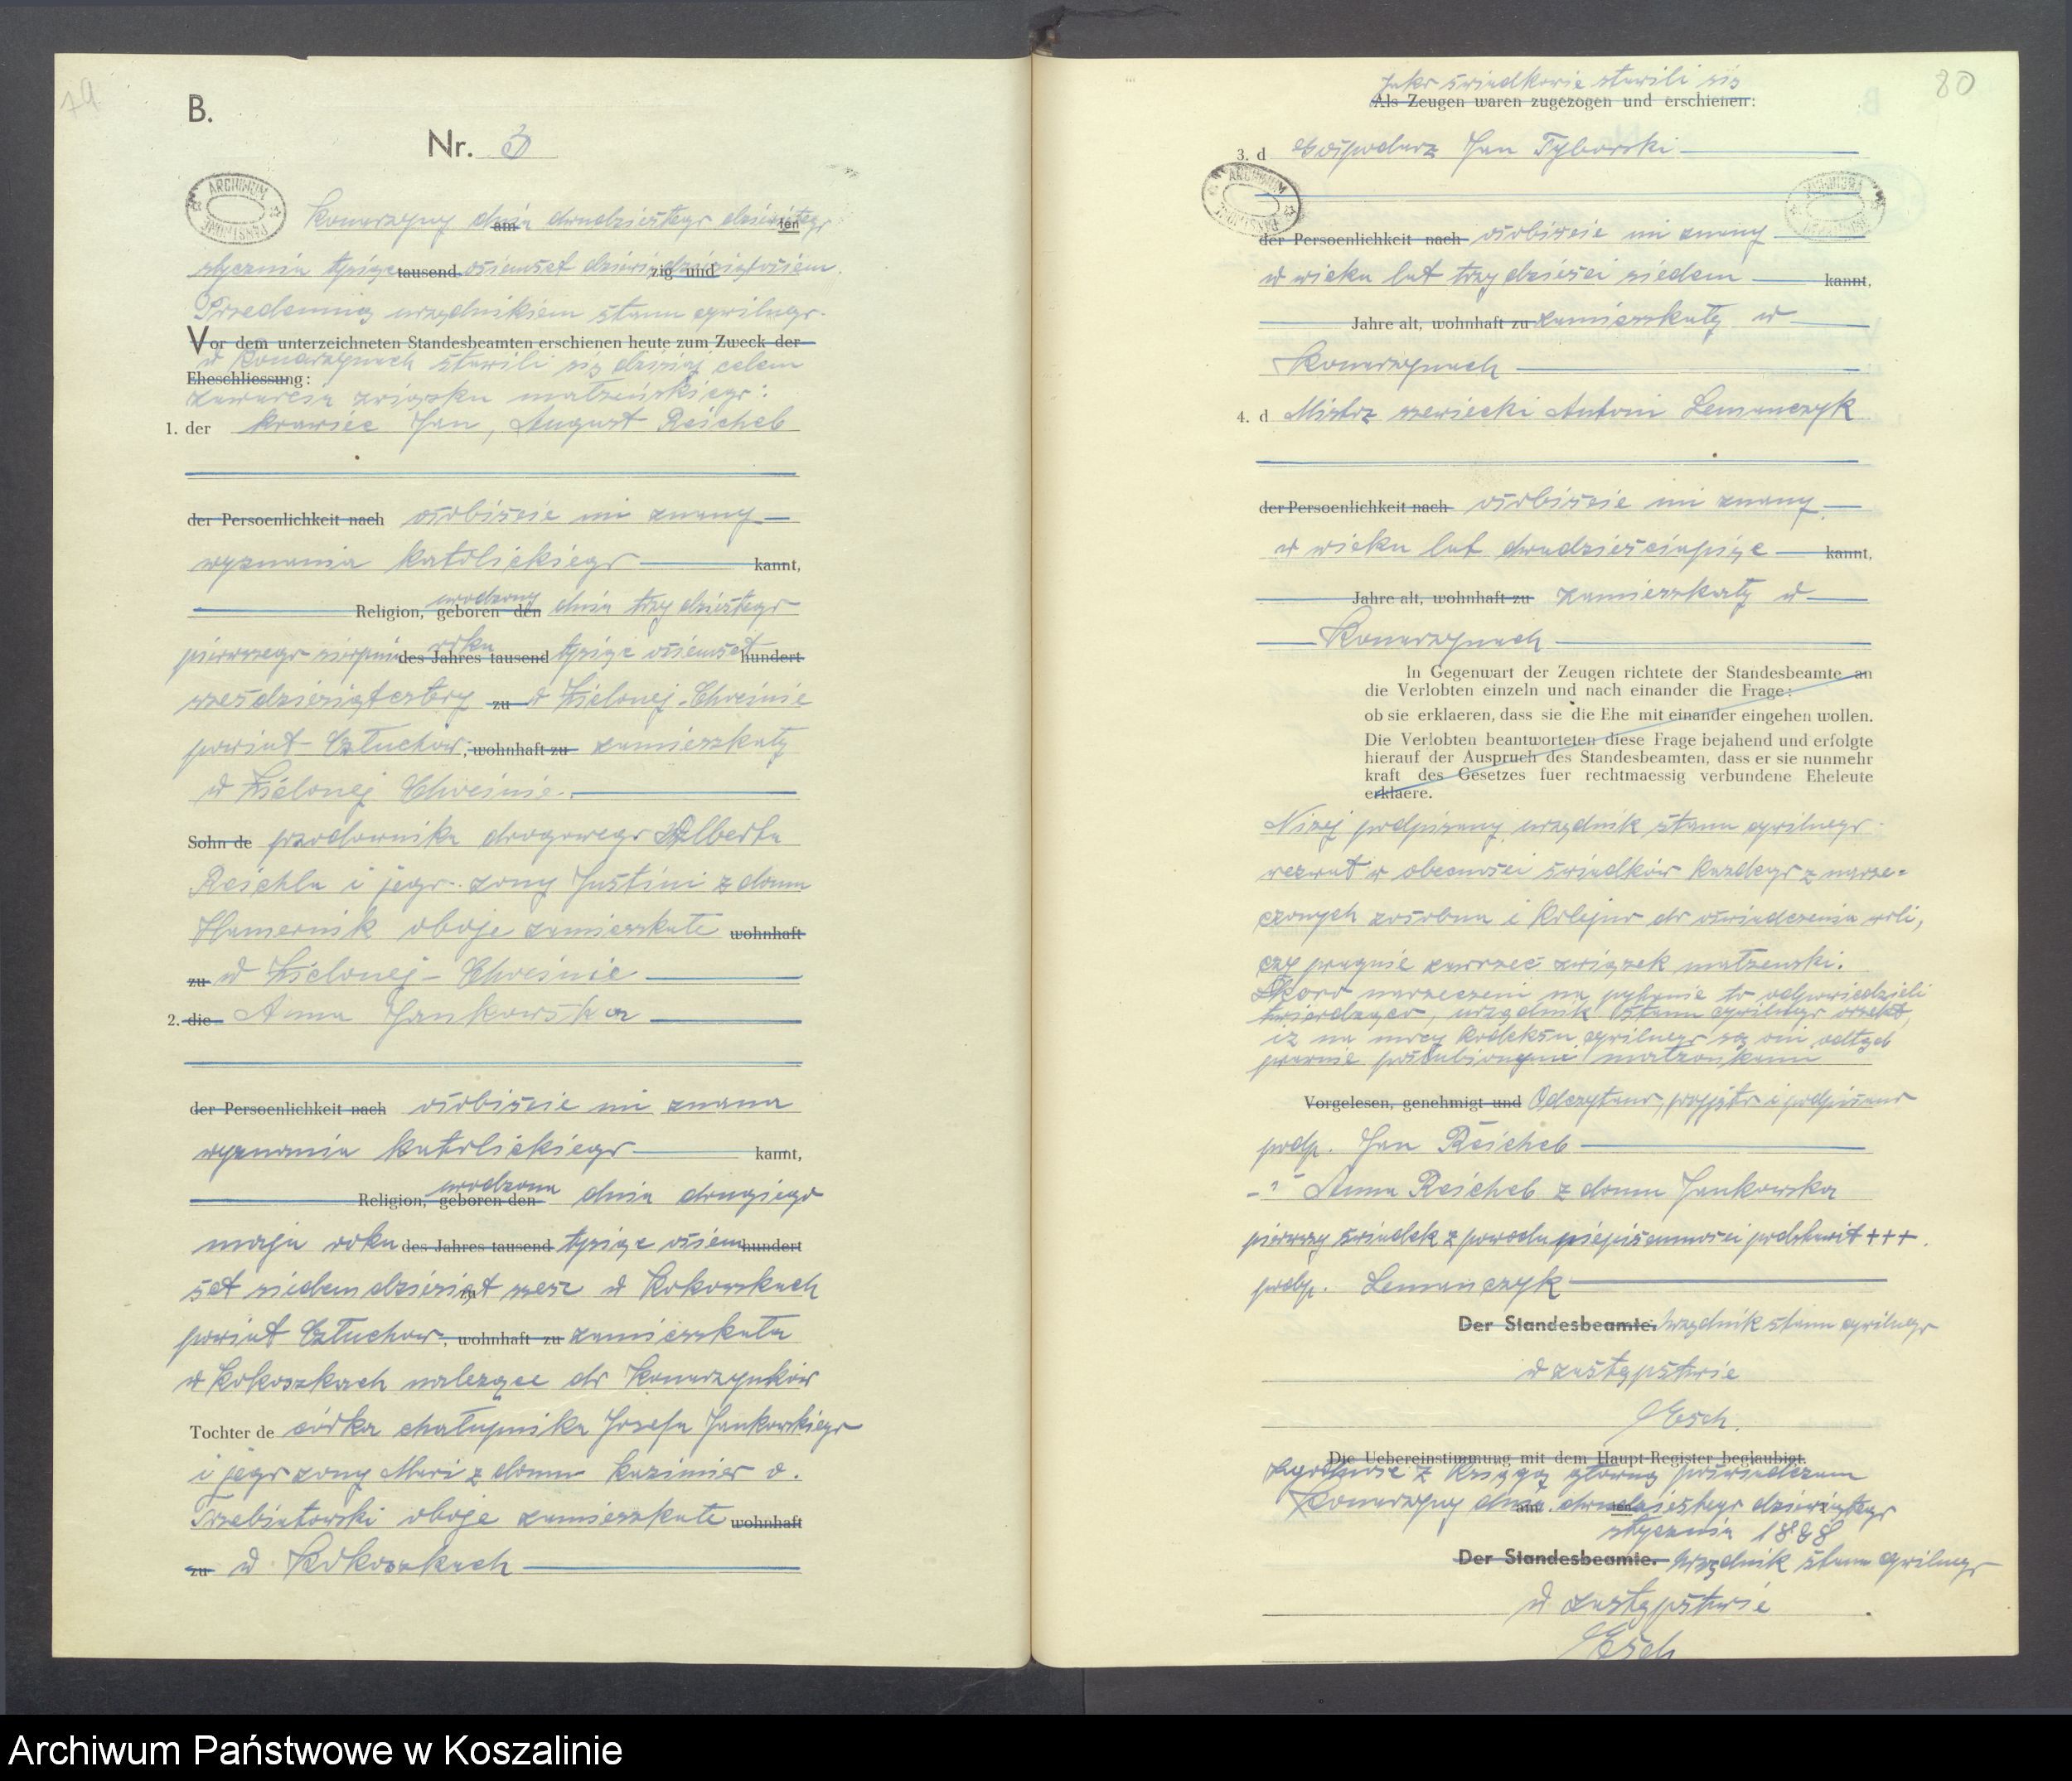 79
B.
Nr. 3
ARCHIWUM PAŃSTWOWE
Konarzyny dnia am dwudziestego dziewiątego ten
stycznia tysiąc tausend osiemset dziewięćdziesiąt zig und osiem.
Przedemną urzędnikiem stanu cywilnego
Vor dem unterzeichneten Standesbeamten erschienen heute zum Zweck der
w Konarzynach stawili się dzisiaj celem
Eheschliessung:
zawarcia związku małżeńskiego:
1. der krawiec Jan, August Reichel
der Persoenlichkeit nach osobiście mi znany
wyznania katolickiego kannt,
urodzony
Religion, geboren den dnia trzydziestego
pierwszego sierpnia roku des Jahres tausend tysiąc osiemset hundert
sześdziesiątcztery zu w Zielonej-Chocinie
powiat Człuchów, wohnhaft zu zamieszkały
w Zielonej Chocinie.
Sohn de przodownika drogowego Alberta
Reichla i jego żony Justini z domu
Hamernik oboje zamieszkałe wohnhaft
zu w Zielonej-Chocinie
2. die Anna Jankowska
der Persoenlichkeit nach osobiście mi znana
wyznania katolickiego kannt,
urodzona
Religion, geboren den dnia drugiego
maja roku des Jahres tausend tysiąc osiem hundert
set siedemdziesiąt szesz zu w Kokoszkach
powiat Człuchow, wohnhaft zu zamieszkała
w Kokoszkach należące do Konarzynków
Tochter de córka chałupnika Jozefa Jankowskiego
i jego żony Mari z domu Kazimier v.
Trzebiatowski oboje zamieszkałe wohnhaft
zu w Kokoszkach
80
Jako świadkowie stawili się
Als Zeugen waren zugezogen und erschienen:
3. d Gospodarz Jan Tyborski
ARCHIWUM PAŃSTWOWE
der Persoenlichkeit nach osobiście mi znany
w wieku lat trzydzieści siedem kannt,
Jahre alt, wohnhaft zu zamieszkały w
Konarzynach
4. d Mistrz szewiecki Antoni Lemanczyk
der Persoenlichkeit nach osobiście mi znany
w wieku lat dwadzieściapięc kannt,
Jahre alt, wohnhaft zu zamieszkały w
Konarzynach
In Gegenwart der Zeugen richtete der Standesbeamte an
die Verlobten einzeln und nach einander die Frage:
ob sie erklaeren, dass sie die Ehe mit einander eingehen wollen.
Die Verlobten beantworteten diese Frage bejahend und erfolgte
hierauf der Auspruch des Standesbeamten, dass er sie nunmehr
kraft des Gesetzes fuer rechtmaessig verbundene Eheleute
erklaere.
Niżej podpisany urzędnik stanu cywilnego
wezwał w obecności świadków każdego z narze=
czonych zosobna i kolejno do oświadczenia woli,
czy pragnie zawrzeć związek małżenski.
Skoro narzeczeni na pytanie to odpowiedzieli
twierdząco, urzędnik stanu cywilnego orzekł,
iż na mocy kodeksu cywilnego są oni odtąd
prawnie poślubionymi małżonkami
Vorgelesen, genehmigt und Odczytano, przyjęto i podpisano
podp. Jan Reichel
-"- Anna Reichel z domu Jankowska
pierwszy świadek z powodu niepiśmności podkreslił +++.
podp. Lemańczyk
Der Standesbeamte. Urzędnik stanu cywilnego
w zastępstwie
Esch.
Die Uebereinstimmung mit dem Haupt-Register beglaubigt.
Zgodność z Księgą głowną poświadczam
Konarzyny dnia am dwudziestego ten dziewiątego
stycznia 1898
Der Standesbeamte. Urzędnik stanu cywilnego
w zastępstwie
Esch
Archiwum Państwowe w Koszalinie